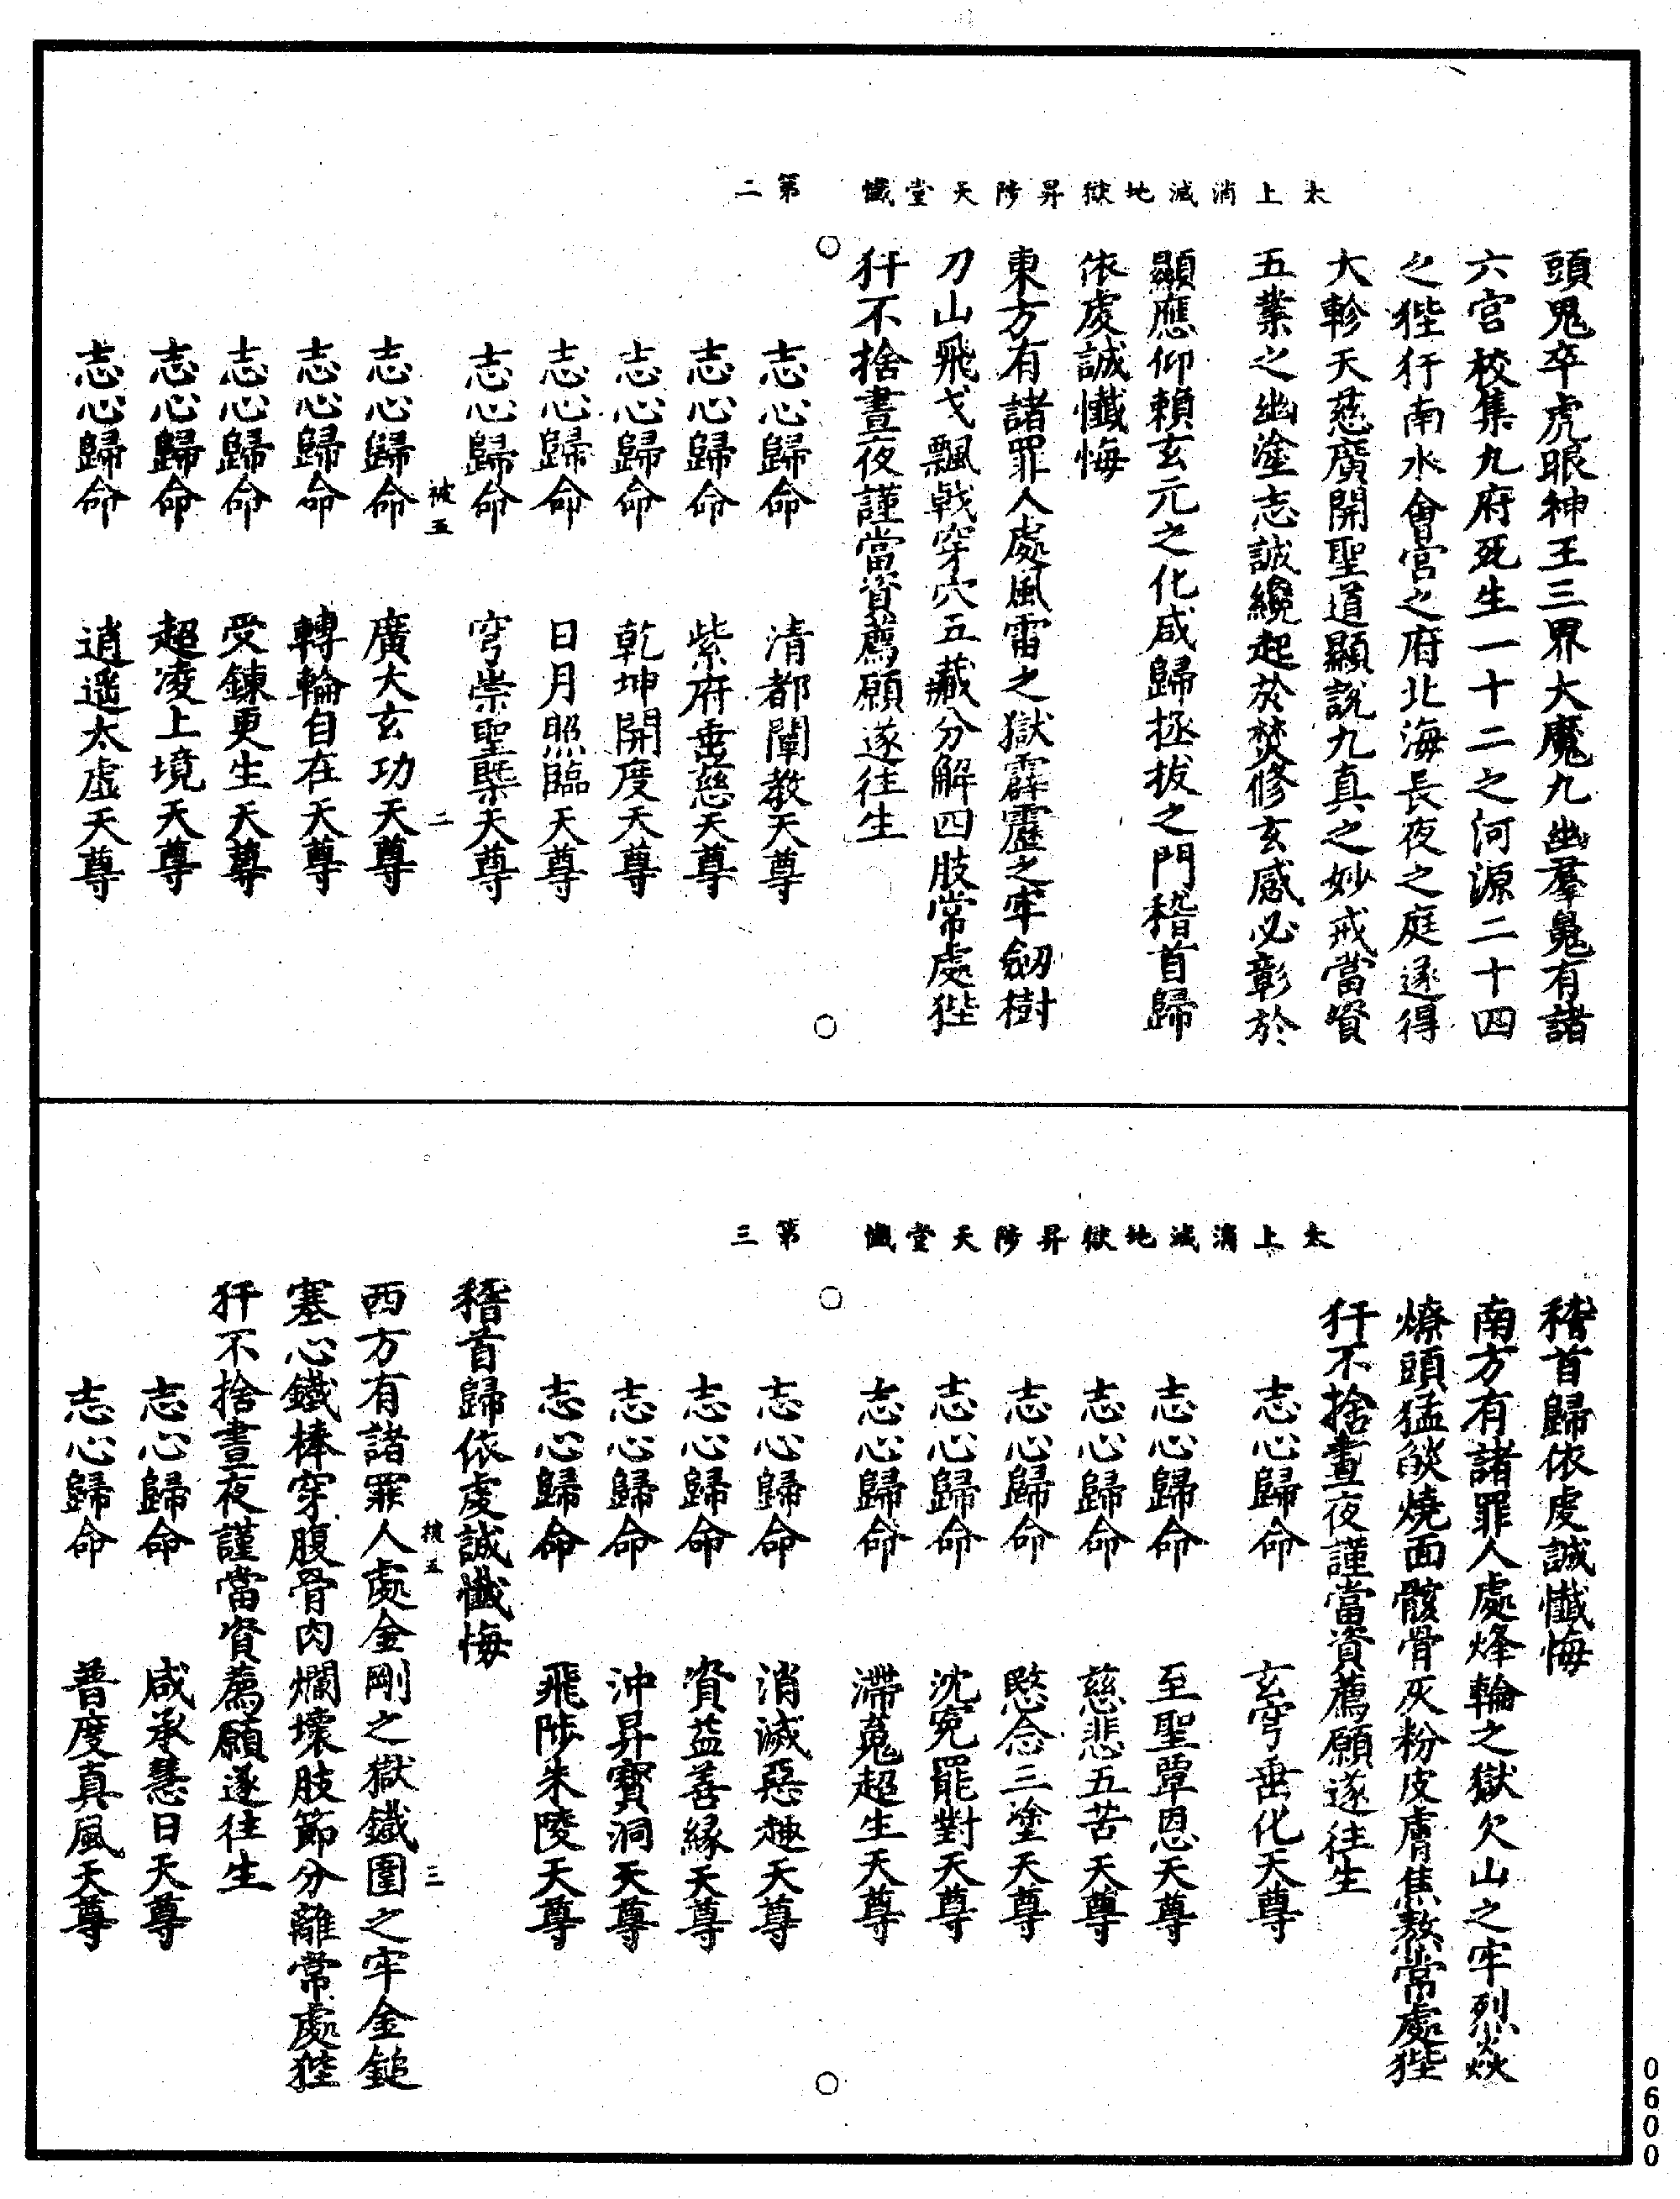 太上消滅地獄昇陟天堂懺　第二
頭鬼卒虎眼神王三界大魔九幽羣鬼有諸
六宮校集九府死生一十二之河源二十四
之狴犴南水會宮之府北海長夜之庭遂得
大軫天慈廣開聖道顯說九真之妙戒當資
五業之幽塗志誠纔起於焚修玄感必彰於
顯應仰賴玄元之化咸歸拯拔之門稽首歸
依虔誠懺悔
東方有諸罪人處風雷之獄霹靂之牢劒樹
刀山飛戈飄戟穿穴五藏分解四肢常處狴
犴不捨晝夜謹當資薦願遂往生
志心歸命　清都闡教天尊
志心歸命　紫府垂慈天尊
志心歸命　乾坤開度天尊
志心歸命　日月照臨天尊
志心歸命　穹崇聖槩天尊
被五　二
志心歸命　廣大玄功天尊
志心歸命　轉輪自在天尊
志心歸命　受鍊更生天尊
志心歸命　超凌上境天尊
志心歸命　逍遥太虛天尊
太上消滅地獄昇陟天堂懺　第三
稽首歸依虔誠懺悔
南方有諸罪人處烽輪之獄火山之牢烈焱
燎頭猛燄燒面骸骨灰粉皮膚焦熬常處狴
犴不捨晝夜謹當資薦願遂往生
志心歸命　玄穹垂化天尊
志心歸命　至聖覃恩天尊
志心歸命　慈悲五苦天尊
志心歸命　愍念三塗天尊
志心歸命　沈寃罷對天尊
志心歸命　滯䰟超生天尊
志心歸命　消滅惡趣天尊
志心歸命　資益善緣天尊
志心歸命　沖昇寶洞天尊
志心歸命　飛陟朱陵天尊
稽首歸依虔誠懺悔
被五　三
西方有諸罪人處金剛之獄鐵圍之牢金鎚
塞心鐵棒穿腹骨肉爛壞肢節分離常處狴
犴不捨晝夜謹當資薦願遂往生
志心歸命　咸承慧日天尊
志心歸命　普度真風天尊
0600